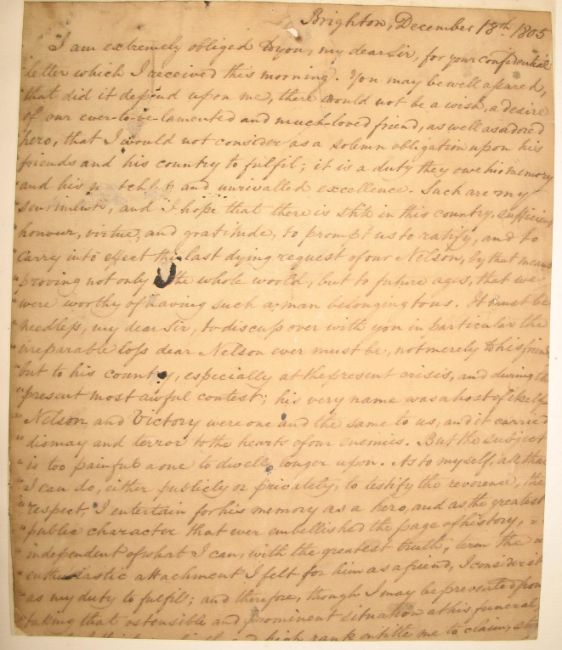 Brighton, December 18th 1805
I am extremely obliged to you, my dear Sir, for your confidential
letter which I received this morning. You may be well assured,
" that did it depend upon me, there would not be a wish, a desire
" of our ever-to-be-lamented and much-loved friend, as well as adored
hero, that I would not consider as a solemn obligation upon his
" friends and his country to fulfil; it is a duty they owe his memory
" and his matchless and unrivalled excellence. Such are my
" sentiments, and I hope that there is still in this country, sufficient
" honour, virtue, and gratitude, to prompt us to ratify, and to
" carry into effect the last dying request of our Nelson, by that means
" proving not only the whole world, but to future ages, that we
" were worthy of having such a man belonging to us. It must be
" needless, my dear Sir, to discuss over with you in particular the
" irreparable loss dear Nelson ever must be, not merely to his friends
" but to his country, especially at the present crisis, and during the
" present most awful contest; his very name was a host of itself
" Nelson and Victory were one and the same to us, and it carried
" dismay and terror to the hearts of our enemies. But the subject
" is too painful a one to dwell longer upon. As to myself, all that
" I can do, either publicly or privately, to testify the reverence, the
" respect, I entertain for his memory as a hero, and as the greatest
" public character that ever embellished the page of history,
" independent of what I can, with the greatest truth, term the
" enthusiastic attachment I felt for him as a friend, I consider it
" as my duty to fulfil; and therefore, though I may be prevented from
" taking that ostensible and prominent situation at his funeral,
high rank entitle me to claim,